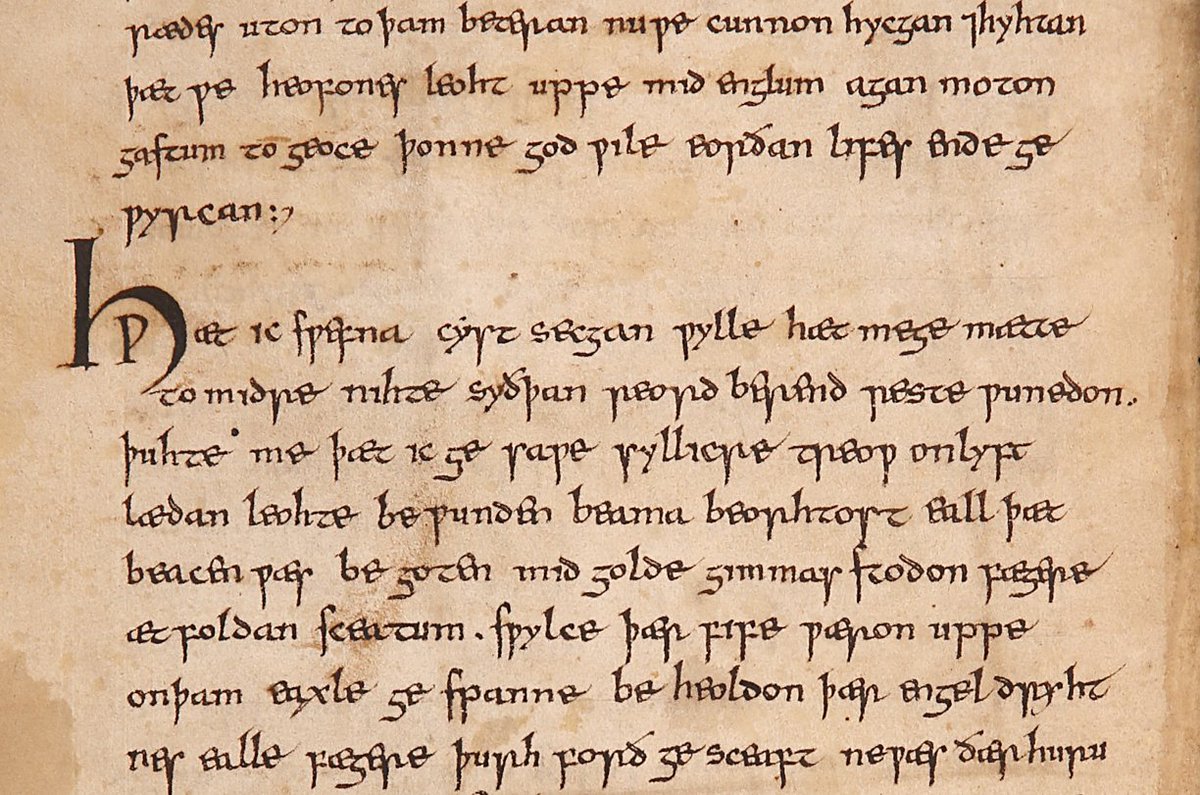 rædes uton to þam beteran nu ƿe cunnon hycgan ⁊hyhtan
þæt ƿe heofones leoht uppe mid englum agan moton
gastum to geoce þonne god ƿile eorðan lifes ende ge
ƿyrcan:,
Hƿæt ic sƿefna cyst secgan ƿylle hæt mege mætte
to midre nihte syðþan reord berend reste ƿunedon.
þuhte me þæt ic ge saƿe syllicre treoƿ on lyft
lædan leohte be ƿunden beama beorhtost eall þæt
beacen ƿæs be goten mid golde gimmas stodon fægere
æt foldan sceatum. sƿylce þær fife ƿæron uppe
on þam eaxle ge spanne be heoldon þær engel dryht
nes ealle fægere þurh forð ge sceaft ne ƿæs ðær huru